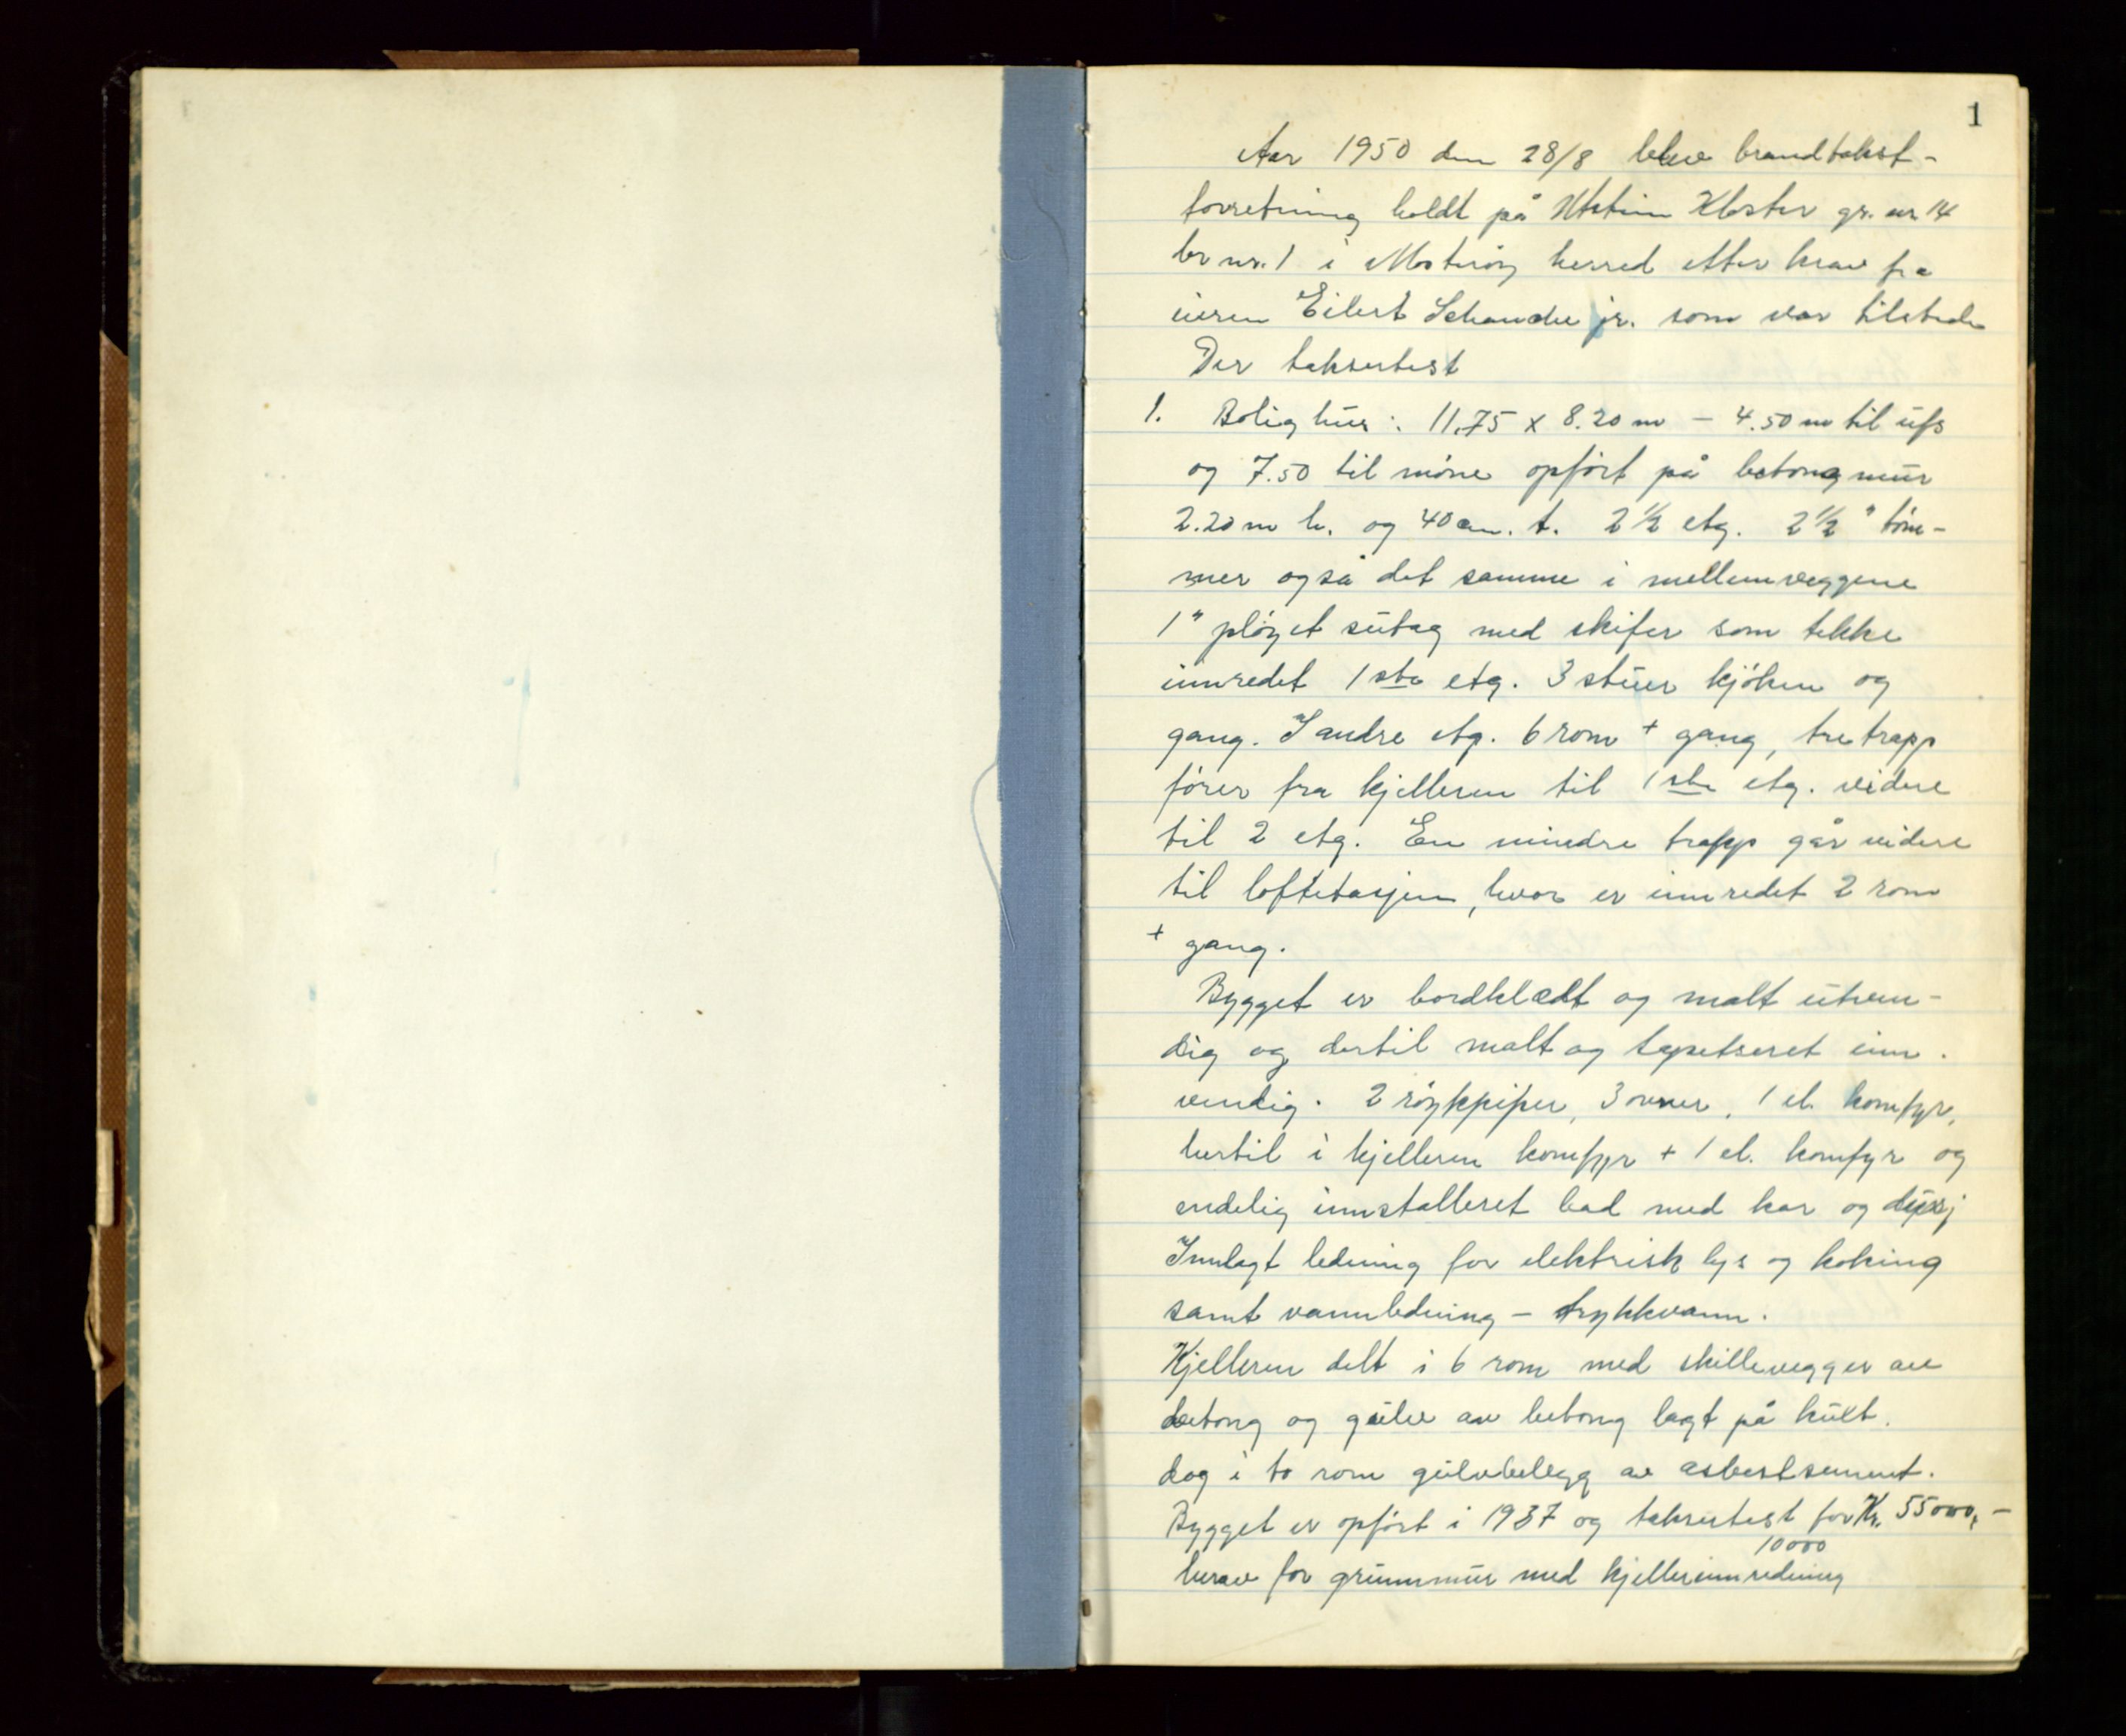 1
Aar 1950 den 28/8 blev brandtakst-
forretning holdt på Utstein Kloster gr. nr. 14
br nr. 1 i Mosterøy herred etter krav fra
eieren Eilert Schanche jr. som var tilstede
Der taksertest
1. Bolighus: 11,75 x 8.20 m - 4.50 m til ufs
og 7.50 til møne opført på betongmur
2.20 m h. og 40 cm. t. 2 1/2 etg. 2 1/2" tøm-
mer også det samme i mellemveggene
1" pløyet sutag med skifer som tekke
innredet 1ste etg. 3 stuer kjøken og
gang. I andre etg. 6 rom + gang, tretrapp
fører fra kjelleren til 1ste etg. videre
til 2 etg. En mindre trapp går videre
til loftetasjen, hvor er innredet 2 rom
+ gang.
Bygget er bordklædt og malt utven-
dig og dertil malt og tapetseret inn.
vendig. 2 røykpiper, 3 ovner, 1 el. komfyr,
hertil i kjelleren komfyr + 1 el. komfyr og
endelig innstalleret bad med kar og dusj
Innlagt ledning for elektrisk lys og koking
samt vannledning - trykkvann.
Kjelleren delt i 6 rom med skillevegger av
betong og gulv av betong lagt på kult.
dog i to rom gulvbelegg av asbestsement.
Bygget er opført i 1937 og taksertest for Kr. 55000,-
10000
herav for grunnmur med kjellerinnredning